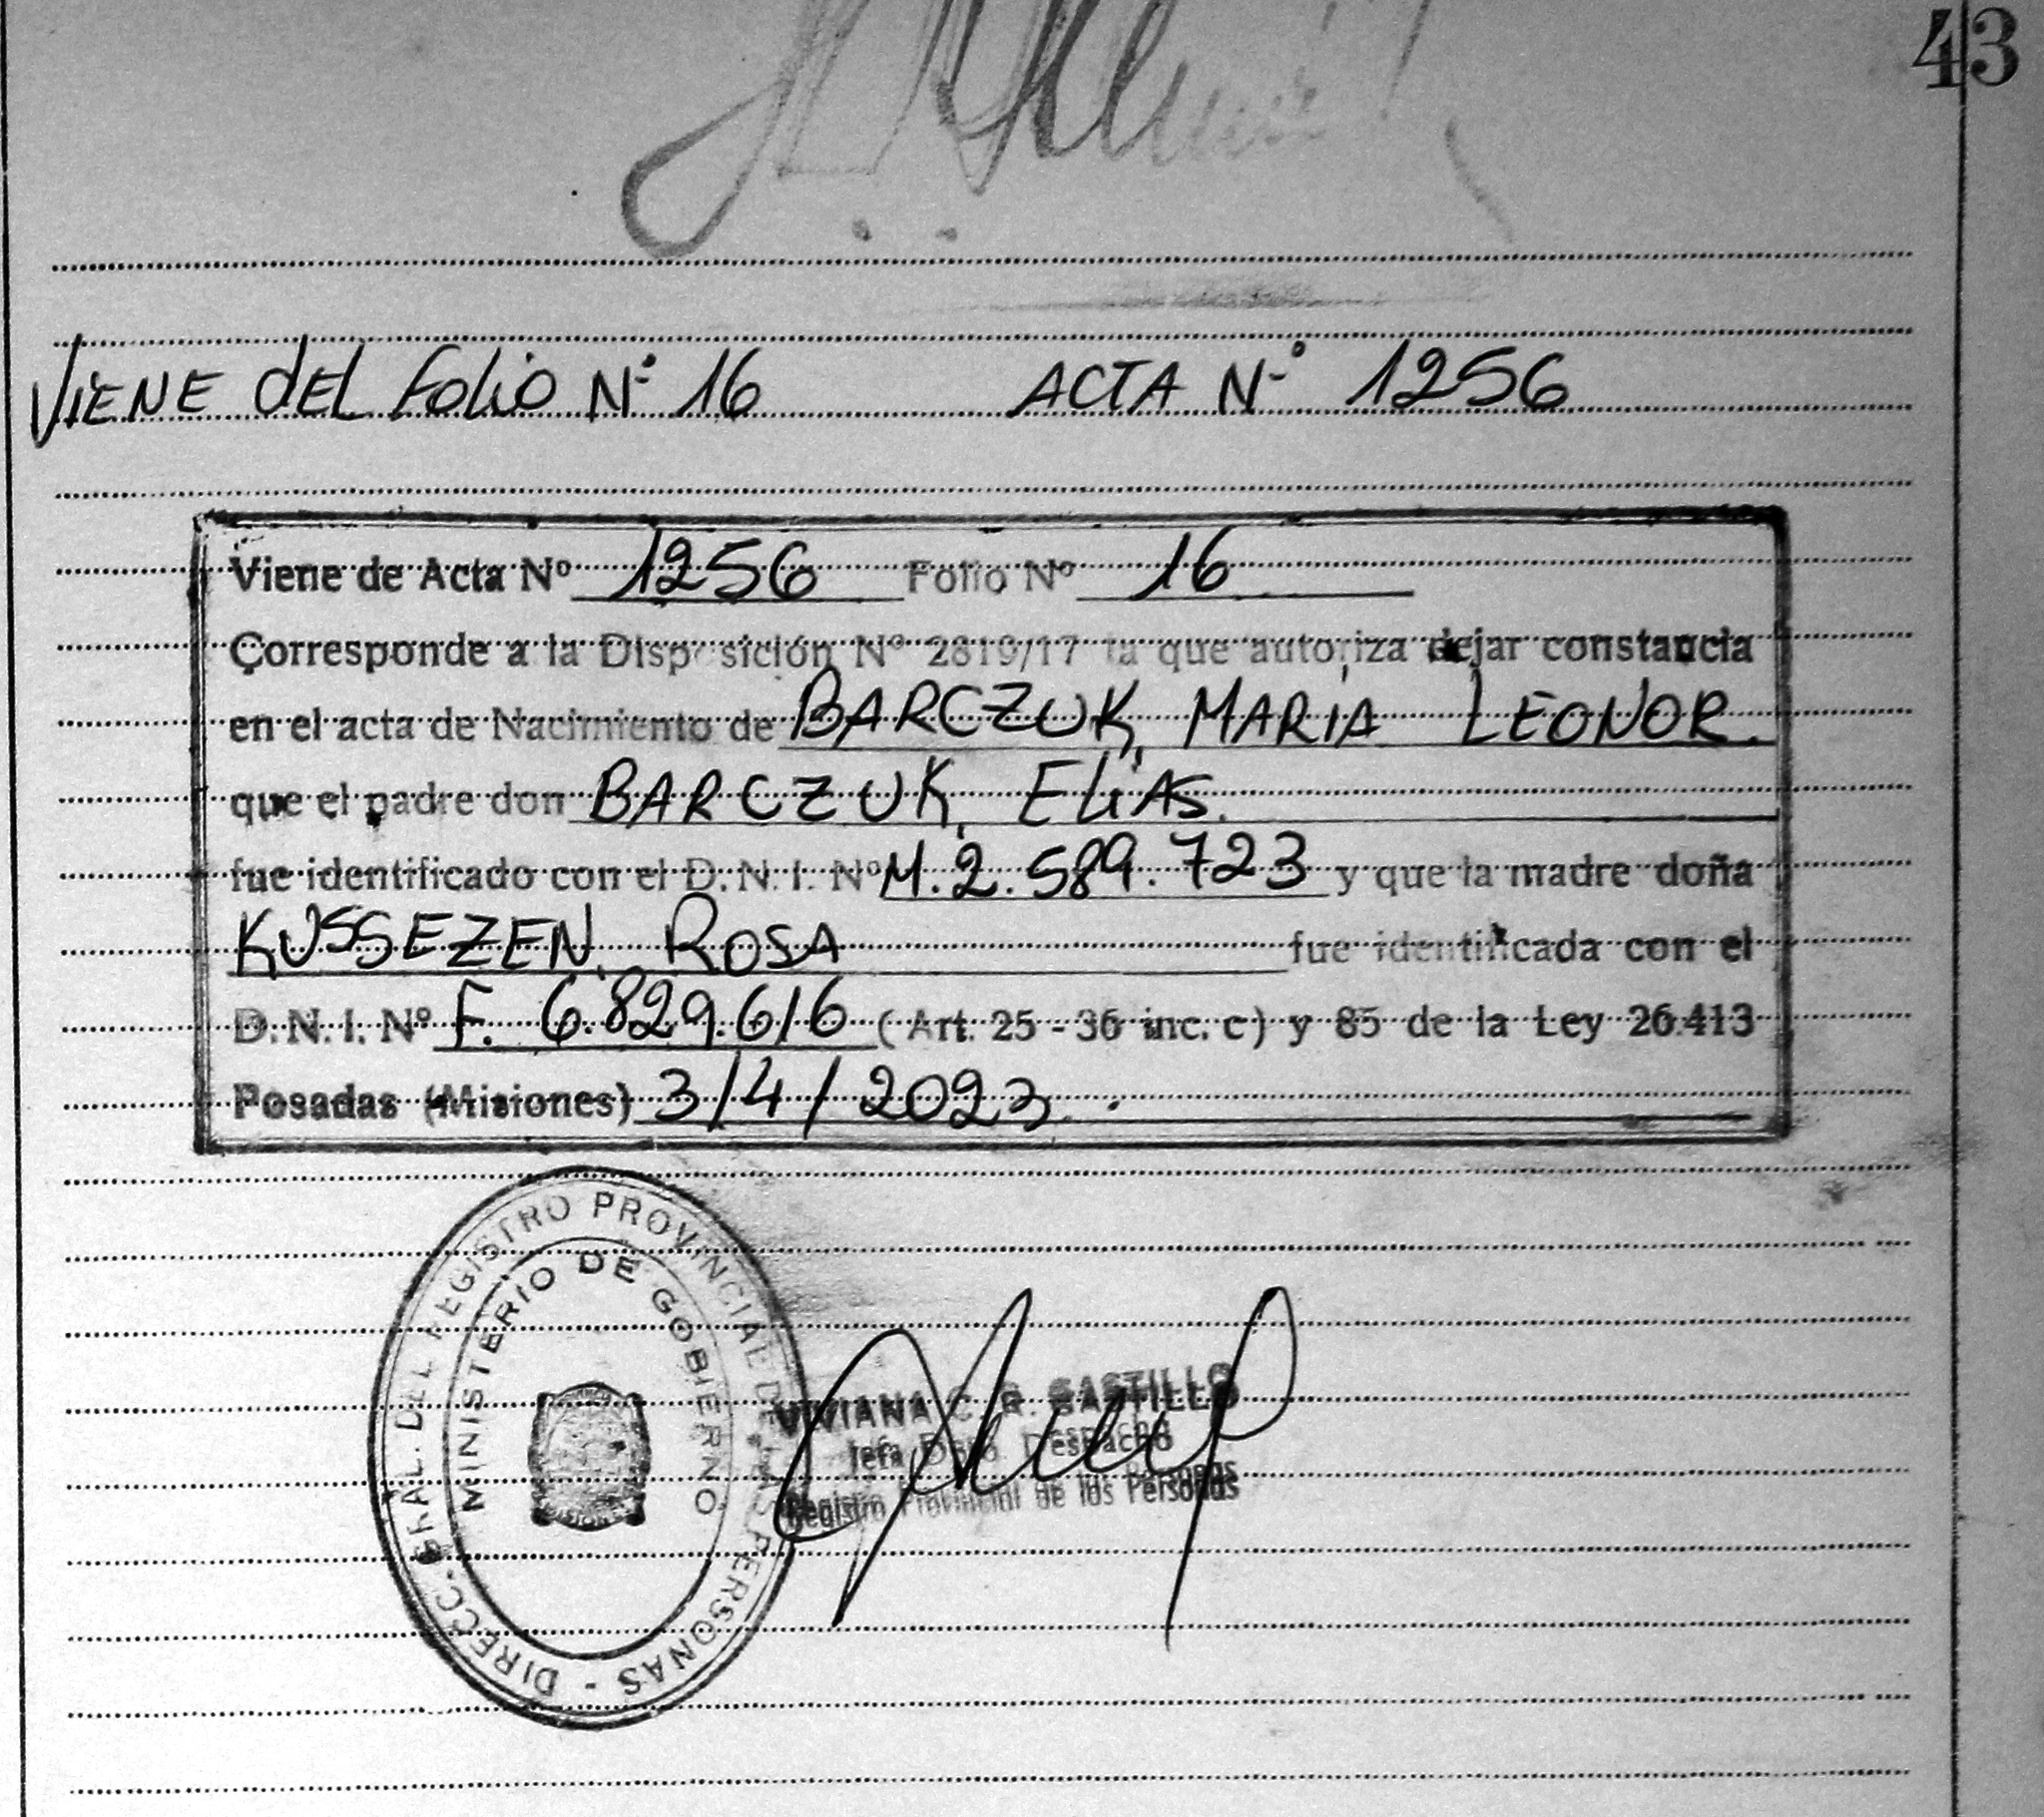 43
ViENE dEL FoLiO Nº 16 ACTA Nº 1256
Viene de Acta Nº 1256 Folio Nº 16
Corresponde a la Disposición Nº 2819/17 la que autoriza dejar constancia
en el acta de Nacimiento de BARCZUK, MARíA LEONOR.
que el padre don BARCZUK, ELiAS.
fue identificado con el D.N.I. Nº M.2.589.723 y que la madre doña
KUSSEZEN, ROSA fue identificada con el
D.N.I. Nº F. 6.829.616 (Art. 25 - 36 inc. c) y 85 de la Ley 26.413
Posadas (Misiones) 3/4/2023.
DIRECC. GRAL. DEL REGISTRO PROVINCIAL DE LAS PERSONAS -
MINISTERIO DE GOBIERNO
MISIONES
VIVIANA C. G. CASTILLO
Jefa Dpto. Despacho
Registro Provincial de las Personas